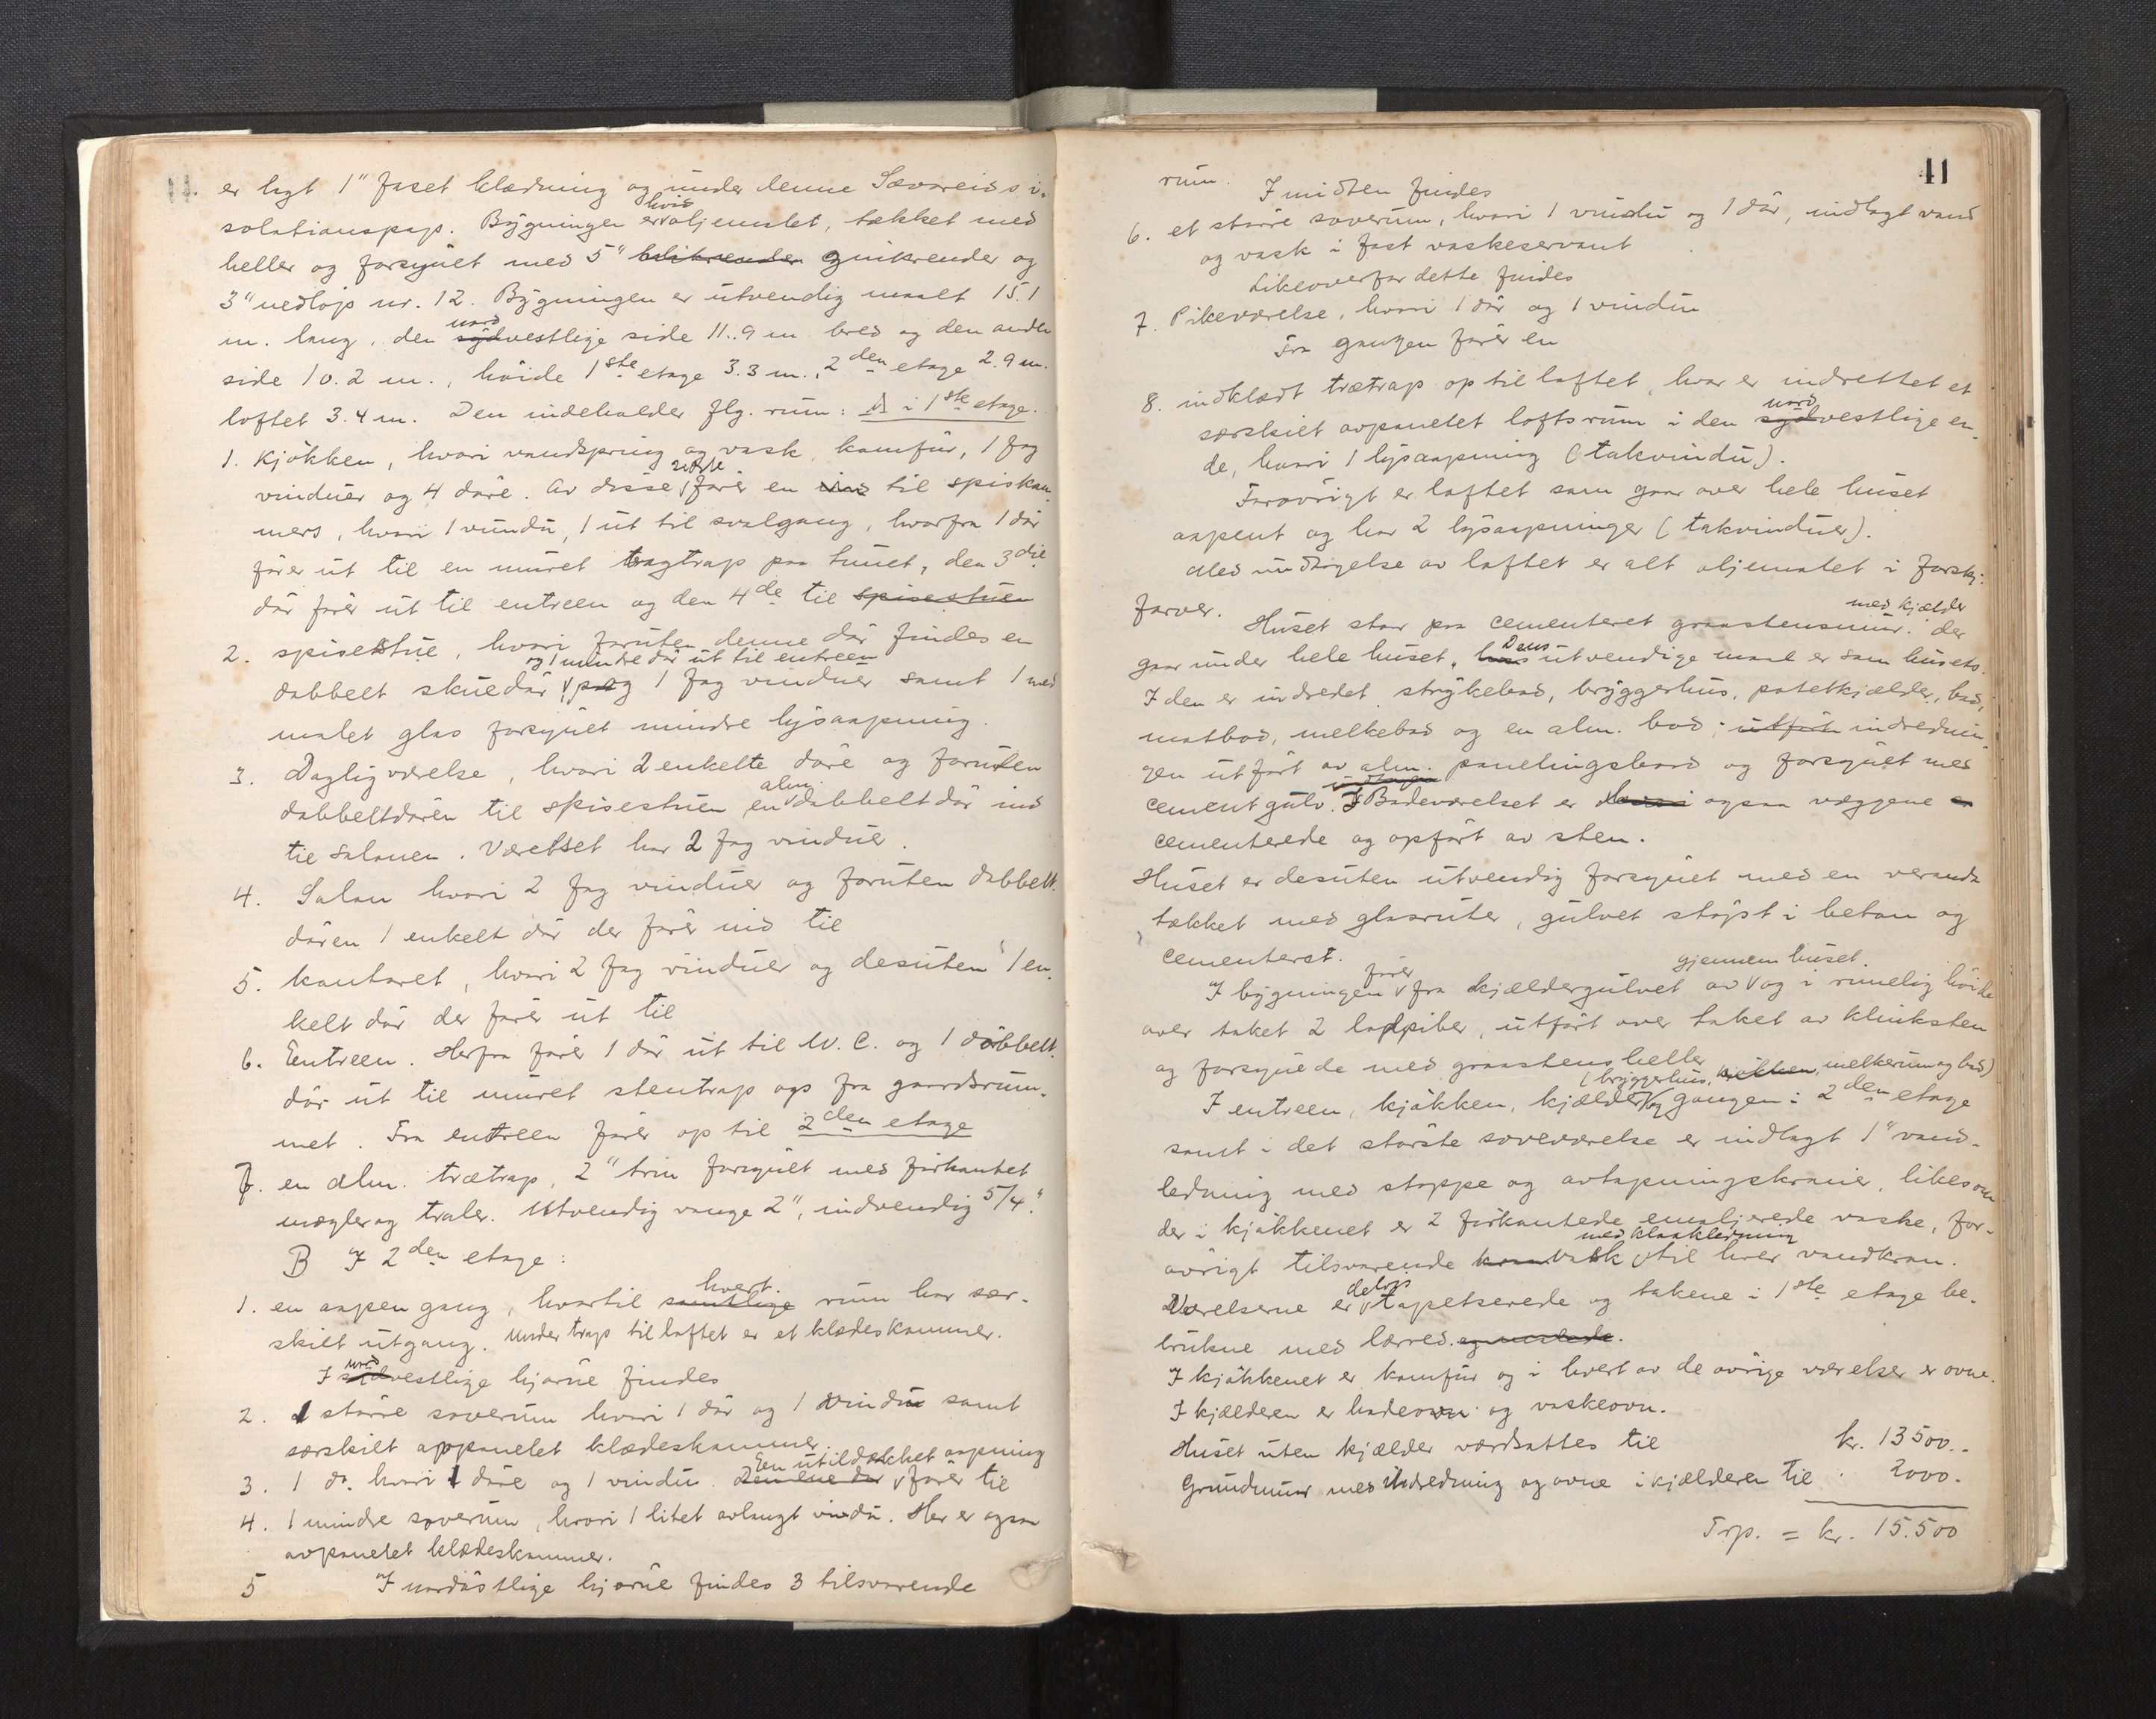 er lagt 1" faset klædning og under denne Sævareids i-
solationspap. Bygningen er hvid oljemalet, tækket med
heller og forsynet med 5" blikrender zinkrender og
3" nedløp nr. 12. Bygningen er utvendig maalt 15.1
m. lang, den syd nordvestlige side 11.9 m bred og den anden
side 10.2 m., høide 1ste etage 3.3 m., 2den etage 2.9 m.
loftet 3.4 m. Den indeholder flg. rum: A i 1ste etage.
1. Kjøkken, hvori vandspring og vask, komfur, 1 fag
vinduer og 4 døre. Av disse sidste fører en ind til spiskam-
mers, hvori 1 vindu, 1 ut til svalgang, hvorfra 1 dør
fører ut til en muret bagtrap paa tunet, den 3die
dør fører ut til entreen og den 4de til spisestuen
2. spisestue, hvori foruten denne dør findes en
dobbelt skuedør og 1 mindre dør ut til entreen og 1 fag vinduer samt 1 med
malet glas forsynet mindre lysaapning.
3. Dagligværelse, hvori 2 enkelte døre og foruten
dobbeltdøren til spisestuen en alm. dobbeltdør ind
til salonen. Værelset har 2 fag vinduer.
4. Salon hvori 2 fag vinduer og foruten dobbelt-
døren 1 enkelt dør der fører ind til
5. kontoret, hvori 2 fag vinduer og desuten 1 en-
kelt dør der fører ut til
6. Entreen. Herfra fører 1 dør ut til W.C. og 1 dobbelt-
dør ut til muret stentrap op fra gaardsrum-
met. Fra entreen fører op til 2den etage
7. en alm. trætrap, 2" trin forsynet med firkantet
mægler og traler. Utvendig vange 2", indvendig 5/4".
B I 2den etage:
1. en aapen gang, hvortil samtlige hvert rum har sær-
skilt utgang. Under trap til loftet er et klædeskammer.
I syd nordvestlige hjørne findes
2. 1 større soverum hvori 1 dør og 1 vindu samt
særskilt avpanelet klædeskammer
3. 1 do. hvori 1 døre og 1 vindu. Den ene dør En utildækket aapning fører til
4. 1 mindre soverum, hvori 1 litet avlangt vindu. Her er ogsaa
avpanelet klædeskammer.
5 I nordøstlige hjørne findes 3 tilsvarende
41
rum. I midten findes
6. et større soverum, hvori 1 vindu og 1 dør, indlagt vand
og vask i fast vaskeservant
Likeoverfor dette findes
7. Pikeværelse, hvori 1 dør og 1 vindu
Fra gangen fører en
8. indklædt trætrap op til loftet, hvor er indrettet et
særskilt avpanelet loftsrum i den syd nordvestlige en-
de, hvori 1 lysaapning (takvindu).
Forøvrigt er loftet som gaar over hele huset
aapent og har 2 lysaapninger (takvinduer).
Med undtagelse av loftet er alt oljemalet i forskj.
farver. Huset staar paa cementeret graastensmur med kjælder der
gaar under hele huset. hvis Dens utvendige maal er som husets.
I den er indredet strykebod, bryggerhus, potetkjælder, bod,
matbod, melkebod og en alm. bod; utført indrednin-
gen utført av alm. panelingsbord og forsynet med
cementgulv. I Badeværelset er ogsaa væggene er
cementerede og opført av sten.
Huset er desuten utvendig forsynet med en veranda
tækket med glasruter, gulvet støpt i beton og
cementeret.
I bygningen fører fra kjældergulvet av gjennem huset og i rimelig høide
over taket 2 loddpiber, utført over taket av klinksten
og forsynede med graastensheller
I entreen, kjøkken, kjælder (bryggerhus, kjøkken, melkerum og bad) og gangen i 2den etage
samt i det største soveværelse er indlagt 1" vand-
ledning med stoppe og avtapningskraner, likesom
der i kjøkkenet er 2 firkantede emaljerede vaske, for-
øvrigt tilsvarende vask med kloakledning til hver vandkran.
Værelserne er delvis tapetserede og takene i 1ste etage be-
trukne med lærred. og malede.
I kjøkkenet er komfur og i hvert av de øvrige værelser er ovne.
I kjælderen er badeovn og vaskeovn.
Huset uten kjælder værdsattes til kr. 13500.-
Grundmur med indredning og ovne i kjælderen til " 2000.-
Trp. = kr. 15.500